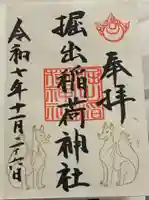 奉拝
掘出稲荷神社
令和七年十一月二十六日